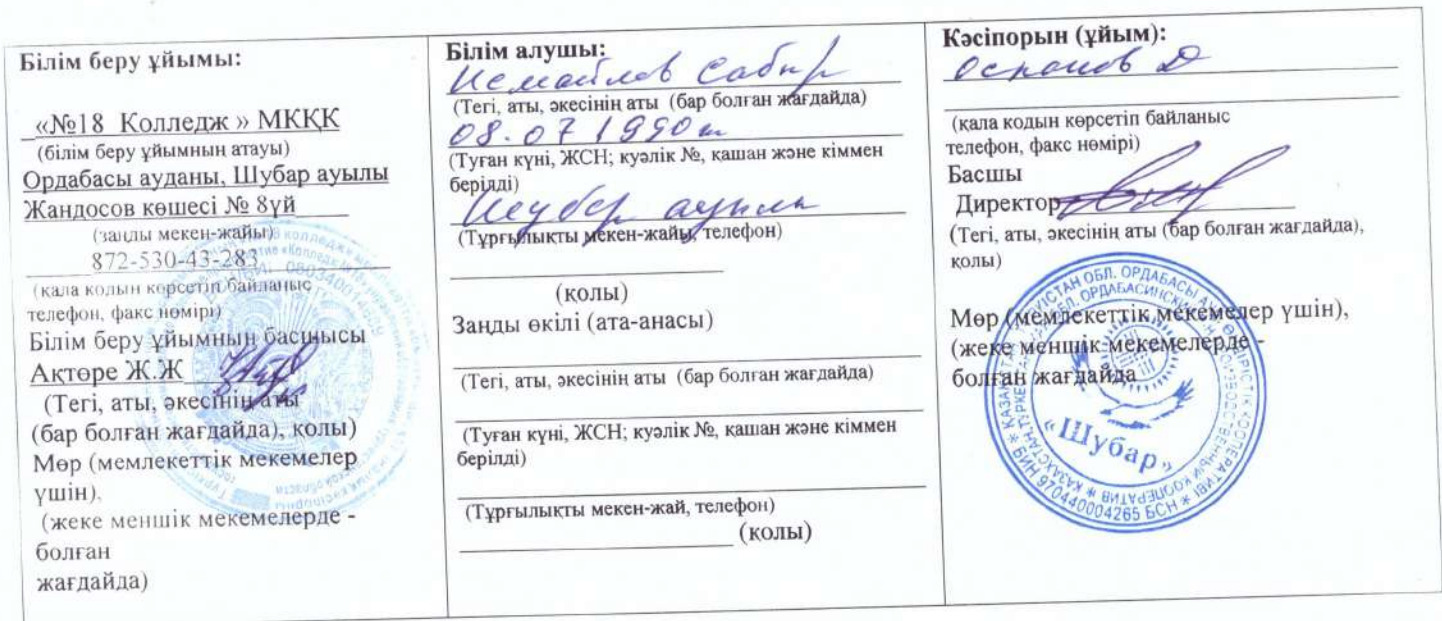 Білім беру ұйымы:
«№18 Колледж » МККҚК
(білім беру ұйымның атауы)
Ордабасы ауданы, Шубар ауылы
Жандосов көшесі № 8үй
(заңды мекен-жайы)
872-530-43-283
(қала кодын көрсетіп байланыс
телефон, факс нөмірі)
Білім беру ұйымның басшысы
Ақтөре Ж.Ж
(Тегі, аты, әкесінің аты
(бар болған жағдайда), қолы)
Мөр (мемлекеттік мекемелер
үшін),
(жеке меншік мекемелерде -
болған
жағдайда)
Білім алушы:
Исмаилов Сабыр
(Тегі, аты, әкесінің аты (бар болған жағдайда)
08.07 1990ж
(Туған күні, ЖСН; куәлік №, қашан және кіммен
берілді)
Шубар ауылы
(Тұрғылықты мекен-жайы, телефон)
(қолы)
Заңды өкілі (ата-анасы)
(Тегі, аты, әкесінің аты (бар болған жағдайда)
(Туған күні, ЖСН; куәлік №, қашан және кіммен
берілді)
(Тұрғылықты мекен-жай, телефон)
(қолы)
Кәсіпорын (ұйым):
Оспанов Д
(қала кодын көрсетіп байланыс
телефон, факс нөмірі)
Басшы
Директор
(Тегі, аты, әкесінің аты (бар болған жағдайда),
қолы)
Мөр (мемлекеттік мекемелер үшін),
(жеке меншік мекемелерде -
болған жағдайда
«Шубар»
970440004265 БСН